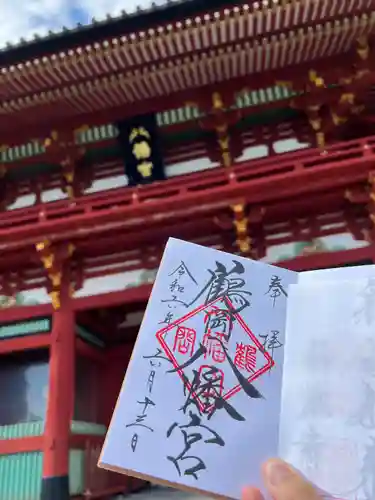 八幡宮
奉拝
鶴岡八幡宮
令和六年
六月十三日
鶴
岡